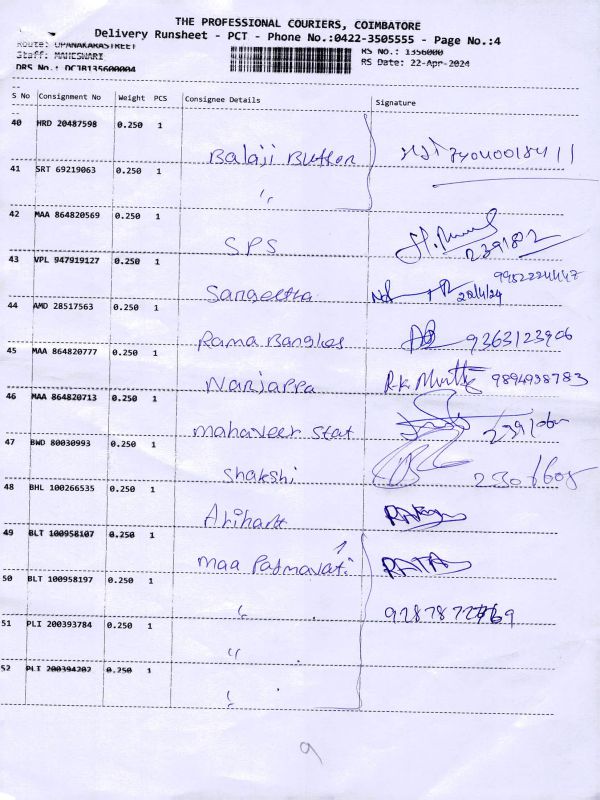 THE PROFESSIONAL COURIERS, COIMBATORE
Delivery Runsheet - PCT - Phone No.:0422-3505555 - Page No.:4
Route: UPANAKARASTREET
Staff: MAHESWARI RS No.: 1356000
RS Date: 22-Apr-2024
S No Consignment No Weight PCS Consignee Details Signature
40 HRD 20487598 0.250 1
Balaji Button
41 SRT 69219063 0.250 1
"
42 MAA 864820569 0.250 1
SPS 2391802
43 VPL 947919127 0.250 1
Sangeetha 22/4/24
44 AMD 28517563 0.250 1
Rama Bangles 9363123906
45 MAA 864820777 0.250 1
Narjappa 9894938783
46 MAA 864820713 0.250 1
mahaveer Stat
47 BWD 80030993 0.250 1
Shakshi
48 BHL 100266535 0.250 1
Arihant
49 BLT 100958107 0.250 1
maa Padmavati
50 BLT 100958197 0.250 1
"
51 PLI 200393784 0.250 1
"
52 PLT 200394202 0.250 1
"
9